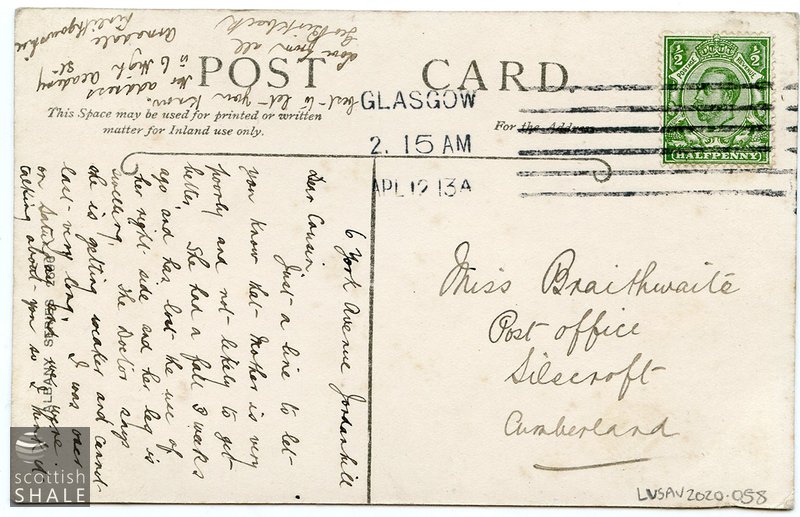 POST CARD.
This Space may be used for printed or written
matter for Inland use only.
For the Address
GLASGOW
2. 15 AM
APL 12 13A
½ ½
POSTAGE REVENUE
HALFPENNY
6 York Avenue Jordanhill
Dear Cousin
Just a line to let
you know that Mother is very
poorly and not likely to get
better. She had a fall 3 weeks
ago and has lost the use of
her right side and her leg is
swelling. The Doctor says
she is getting weaker and cannot
last very long. I was over
on and they were
talking about you so I thought
best to let you know.
Her address
is 6 High Academy St
Armadale
Linlithgowshire
Love from all
Miss Braithwaite
Post office
Silecroft
Cumberland
SERIES
scottish
SHALE
LVSAV2020.058